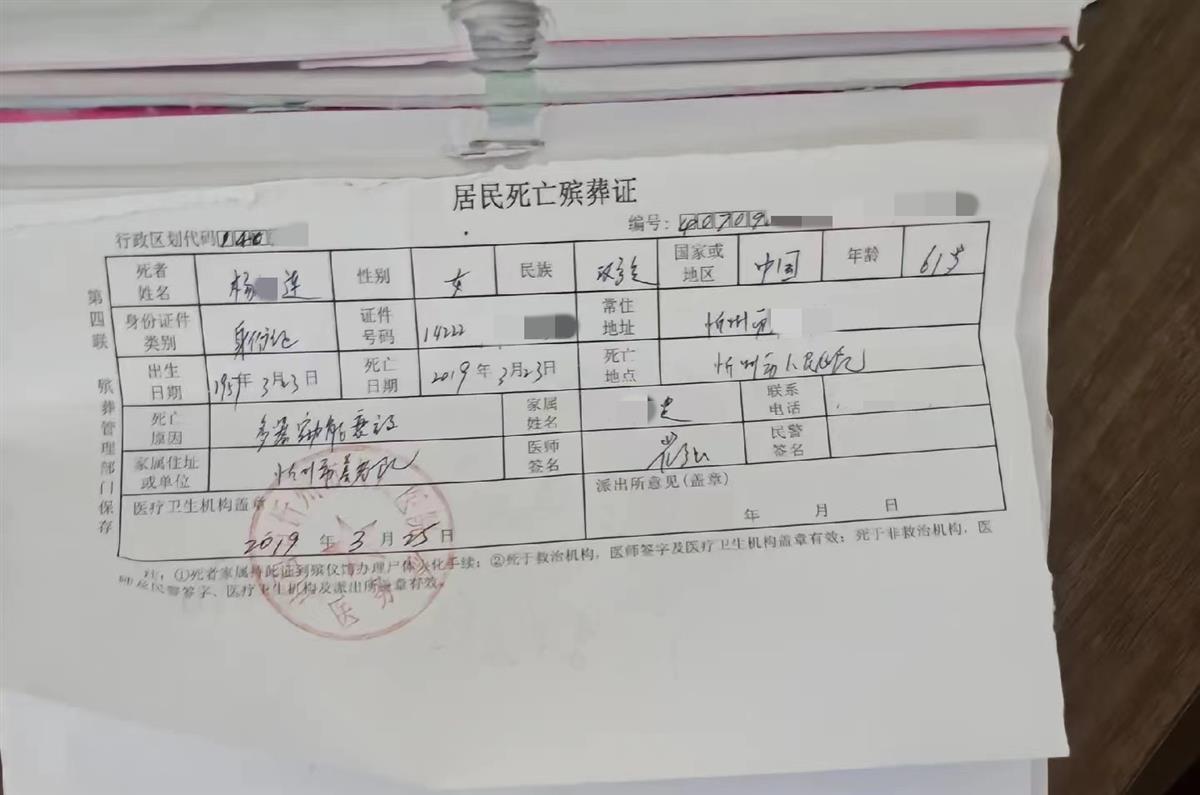 居民死亡殡葬证
行政区划代码 140 编号: 40709
第四联 殡葬管理部门保存
死者姓名 杨 莲 性别 女 民族 汉族 国家或地区 中国 年龄 61岁
身份证件类别 身份证 证件号码 14222 常住地址 忻州市
出生日期 1957年3月23日 死亡日期 2019年3月23日 死亡地点 忻州市人民医院
死亡原因 多器官功能衰竭 家属姓名 联系电话
家属住址或单位 忻州市 医师签名 民警签名
医疗卫生机构盖章: 派出所意见(盖章)
2019年3月25日 年 月 日
注: ①死者家属持此证到殡仪馆办理尸体火化手续; ②死于救治机构, 医师签字及医疗卫生机构盖章有效; 死于非救治机构, 医
师及民警签字、医疗卫生机构及派出所盖章有效。